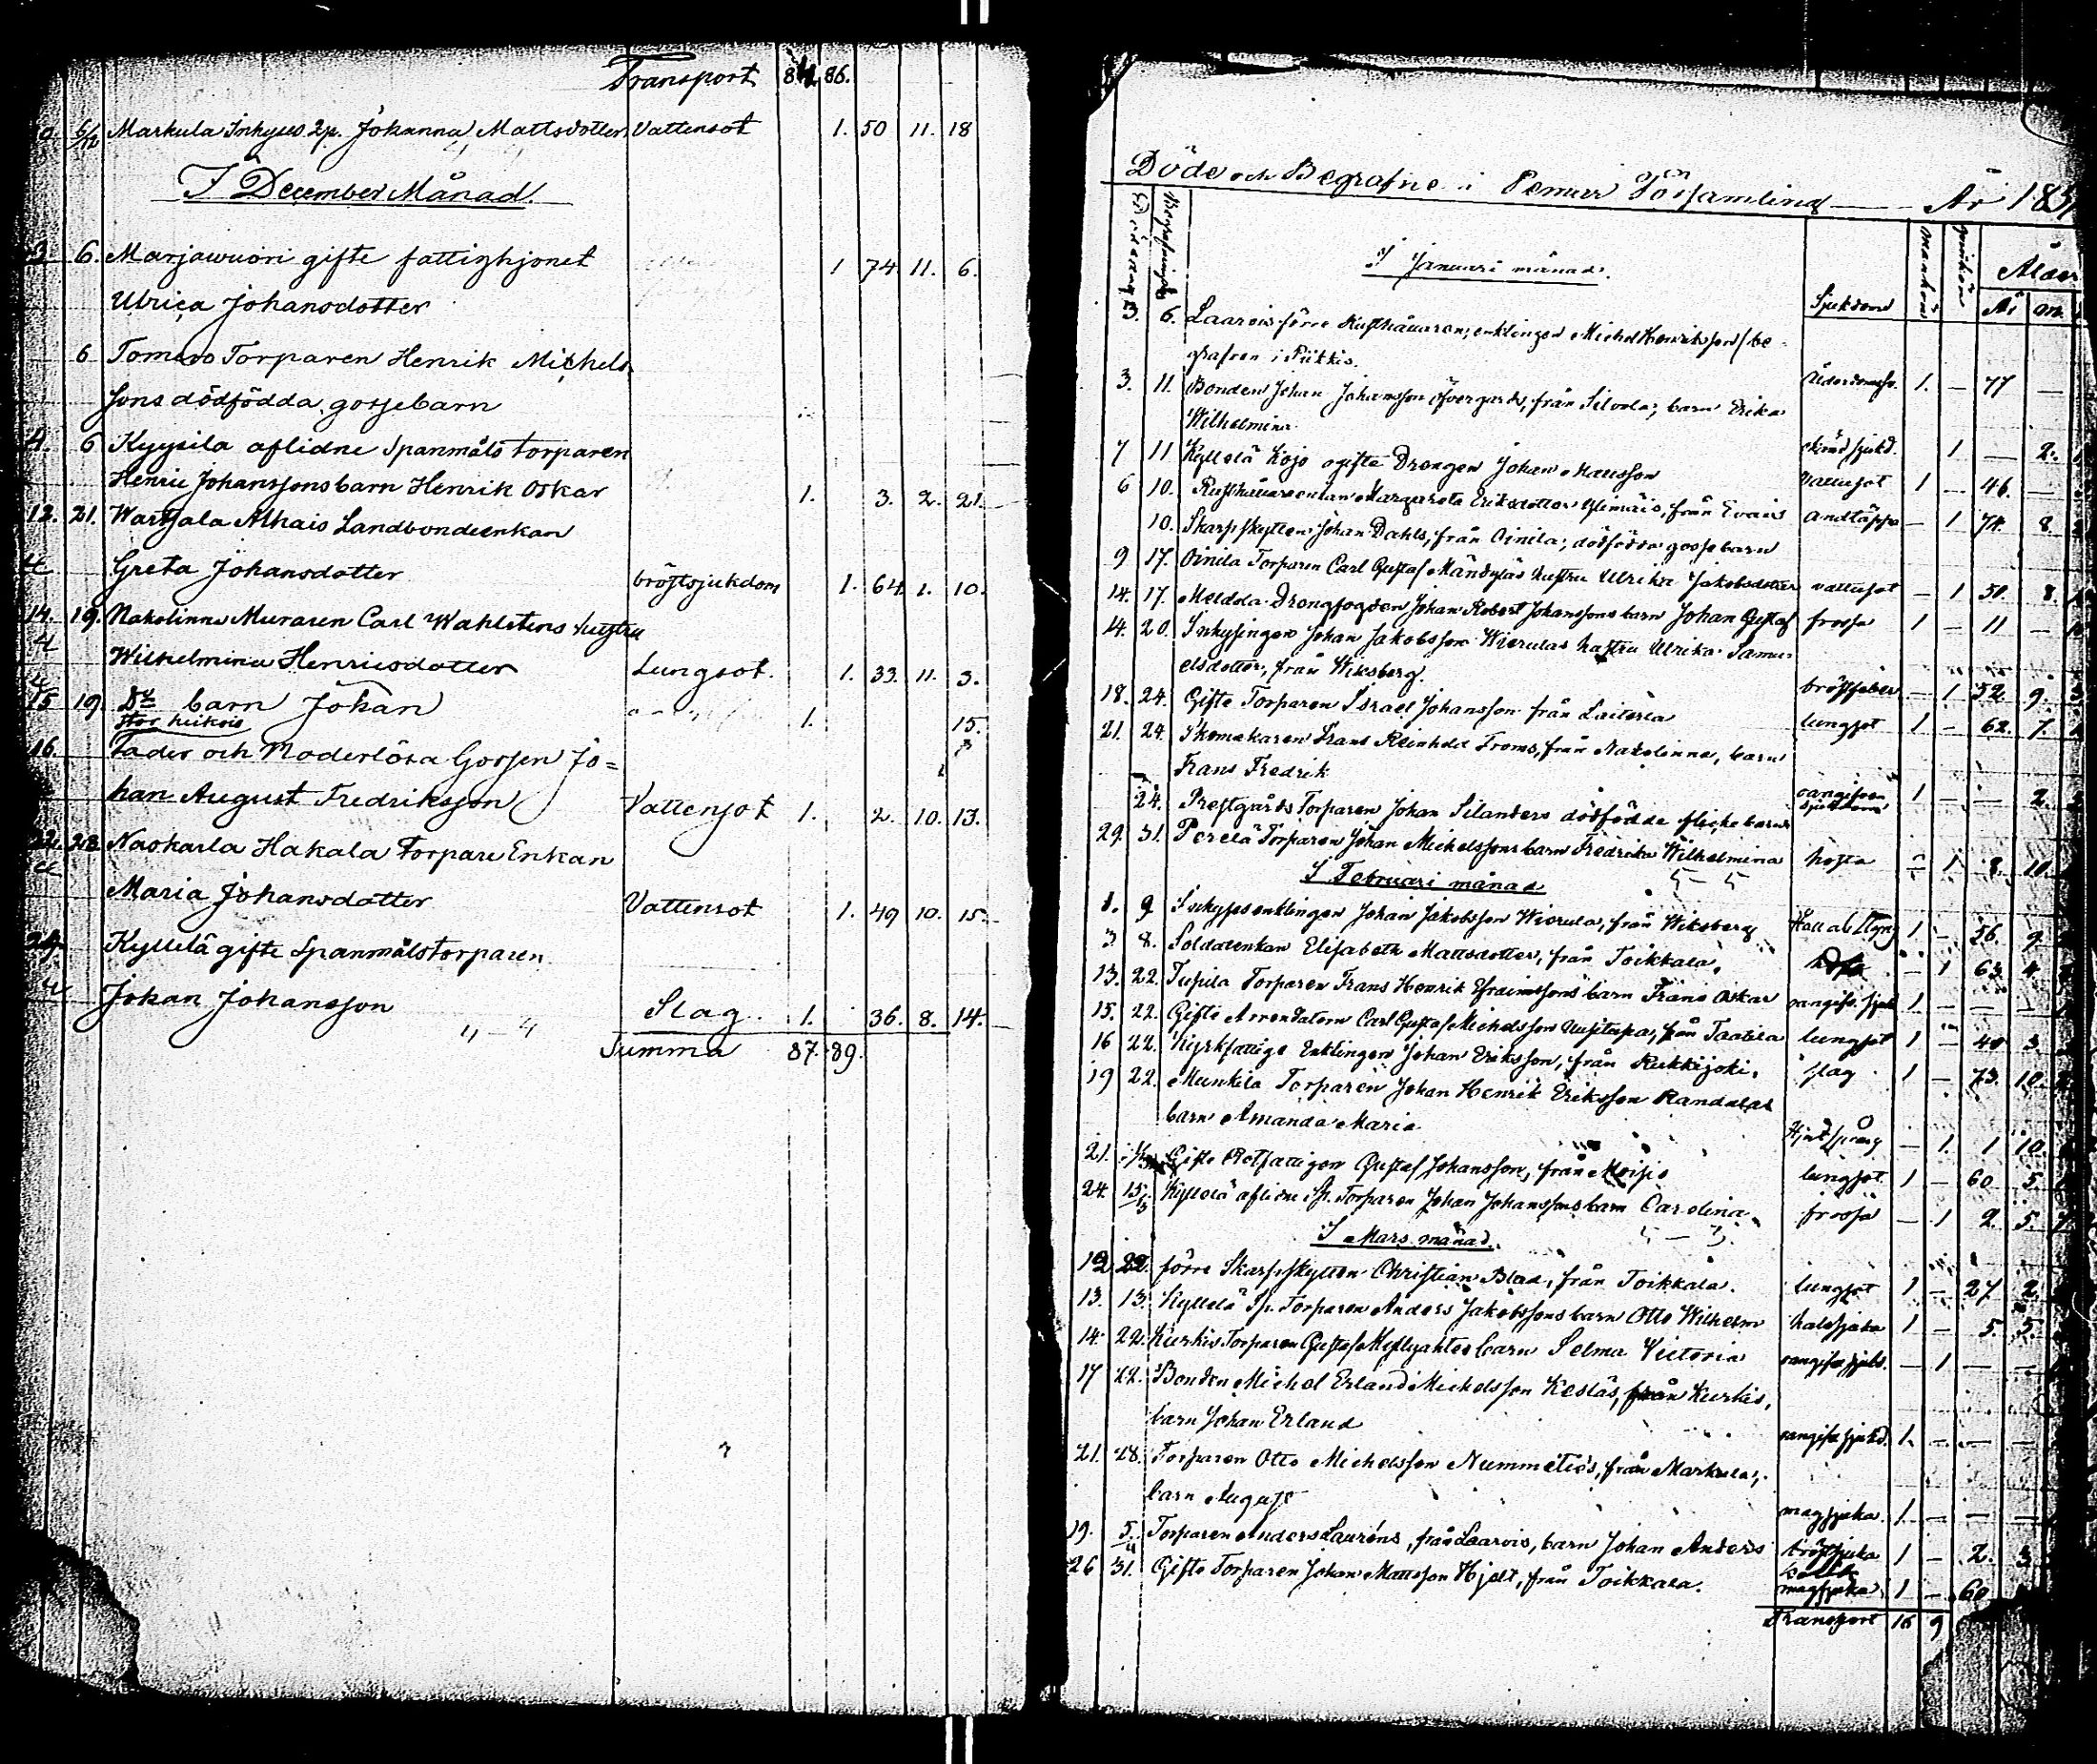 Transport 84. 86.
6/12 Markula Inhyses Zp. Johanna Mattsdotter Vattensot 1. 50 11. 18
I December Månad.
3. 6. Marjawuori gifte fattighjonet 1 74 11. 6.
Ulrica Johansdotter
6 Torparen Henrik Michels
sons dödfödda gossebarn
4. 6 Kyysilä aflidne Spanmåls torparen
Henric Johanssons barn Henrik Oskar 1. 3. 2. 21.
12. 21. Wartsala Alhais Landbondeenkan
Greta Johansdotter bröstsjukdom 1. 64 1. 10.
14. 19. Nakolinna Muraren Carl Wahlstens hustru
Wilhelmina Henricsdotter Lungsot. 1. 33. 11. 3.
15 19. Do barn Johan 1. 15.
Stor heikois
16. Fader och Moderlösa Gossen Jo=
han August Fredriksson Vattensot 1. 2. 10. 13.
22. 28. Naskarla Hakala Torpare Enkan
Maria Johansdotter Vattensot 1. 49 10. 15.
24. Kyllelä gifte Spanmålstorparen
Johan Johansson Slag. 1. 36. 8. 14.
Summa 87. 89.
Döde och Begrafne i Pemar Församling År 185
I Januari månad. Sjukdom Mankön Qvinkön Ålder År M.
3. 6. Laarois förre Rusthållaren, enklingen Michel Henriksson/be-
grafven i Piikkis. Ålderdomssv. 1. — 77 —
3. 11. Bonden Johan Johansson Öfvergårds, från Silvola; barn Erika
Wilhelmina okänd sjukd. 1 — 2.
7 11 Kyllelä Kojo ogifte Drengen Johan Mattsson Vattusot 1 — 46. —
6 10. Rusthållareenkan Margareta Eriksdotter Ylemäis, från Evais Andtäppa — 1 74. 8.
10. Skarpskytten Johan Dahls, från Oinila; dödfödda gossebarn
9 17. Oinila Torparen Carl Gustaf Mändyläs hustru Ulrika Jakobsdotter vattusot — 1 50. 8.
14. 17. Meldola Drengfogden Johan Robert Johanssons barn Johan Gustaf frossa 1 — 11 —
14. 20. Inhysingen Johan Jakobsson Wierulas hustru Ulrika Samu-
elsdotter, från Wiksberg. bröstfeber — 1 52. 9.
18. 24. Gifte Torparen Israel Johansson från Laiterla lungsot 1 — 62. 7.
21. 24. Skomakaren Frans Reinhold Froms, från Nakolinna, barn
Frans Fredrik oangifven sjukdom 1 — — 2.
24. Prestgårds Torparen Johan Silanders dödfödde flickebarn
29. 31. Perelä Torparen Johan Michelssons barn Fredrika Wilhelmina hosta — 1 8. 10.
I Februari månad
1. 9 Inhysesenklingen Johan Jakobsson Wierula, från Wiksberg Håll al. Styng 1 — 56. 9
3. 8. Soldatenkan Elisabeth Mattsdotter, från Toikkala. — 1 63. 4.
13. 22. Tupila Torparen Frans Henrik Efraimssons barn Frans Oskar oangifv. sjukd. 1 — — —
15. 22. Gifte Arrendatorn Carl Gustaf Michelsson Uusitupa, från Taatila lungsot 1 — 40 3.
16 22. Kyrkfattige Enklingen Johan Eriksson, från Rukkijoki. slag 1 — 73. 10.
19 22. Munkila Torparen Johan Henrik Eriksson Randalas
barn Amanda Maria — 1. 1 10.
21. Gifte Rotfattigen Gustaf Johansson, från Moisio lungsot 1 — 60 5.
24. 15/3 Kyllelä aflidne Sp. Torparen Johan Johanssons barn Carolina frossa — 1 2. 5.
I Mars månad.
12 22. förre Skarpskytten Christian Blad, från Toikkala. lungsot 1 — 27 2
13. 13. Kyllelä Sp. Torparen Anders Jakobssons barn Otto Wilhelm halssjuka 1 — 5. 5.
14. 22. Kurkis Torparen Gustaf barn Selma Victoria oangifv. sjukd. — 1 — —
17 22. Bonden Michel Erland Michelsson Keslas, från Kurkis,
barn Johan Erland oangifv. sjukd. 1. — — —
21. 28. Torparen Otto Michelsson Nummeties, från Markula,
barn August magsjuka. 1. — — —
19. 5/4 Torparen Anders Lauréns, från Laarois, barn Johan Anders bröstsjuka 1 — 2. 3
26 31. Gifte Torparen Johan Mattsson Hjelt, från Toikkala. magsjuka 1 — 60
Transport 16 9